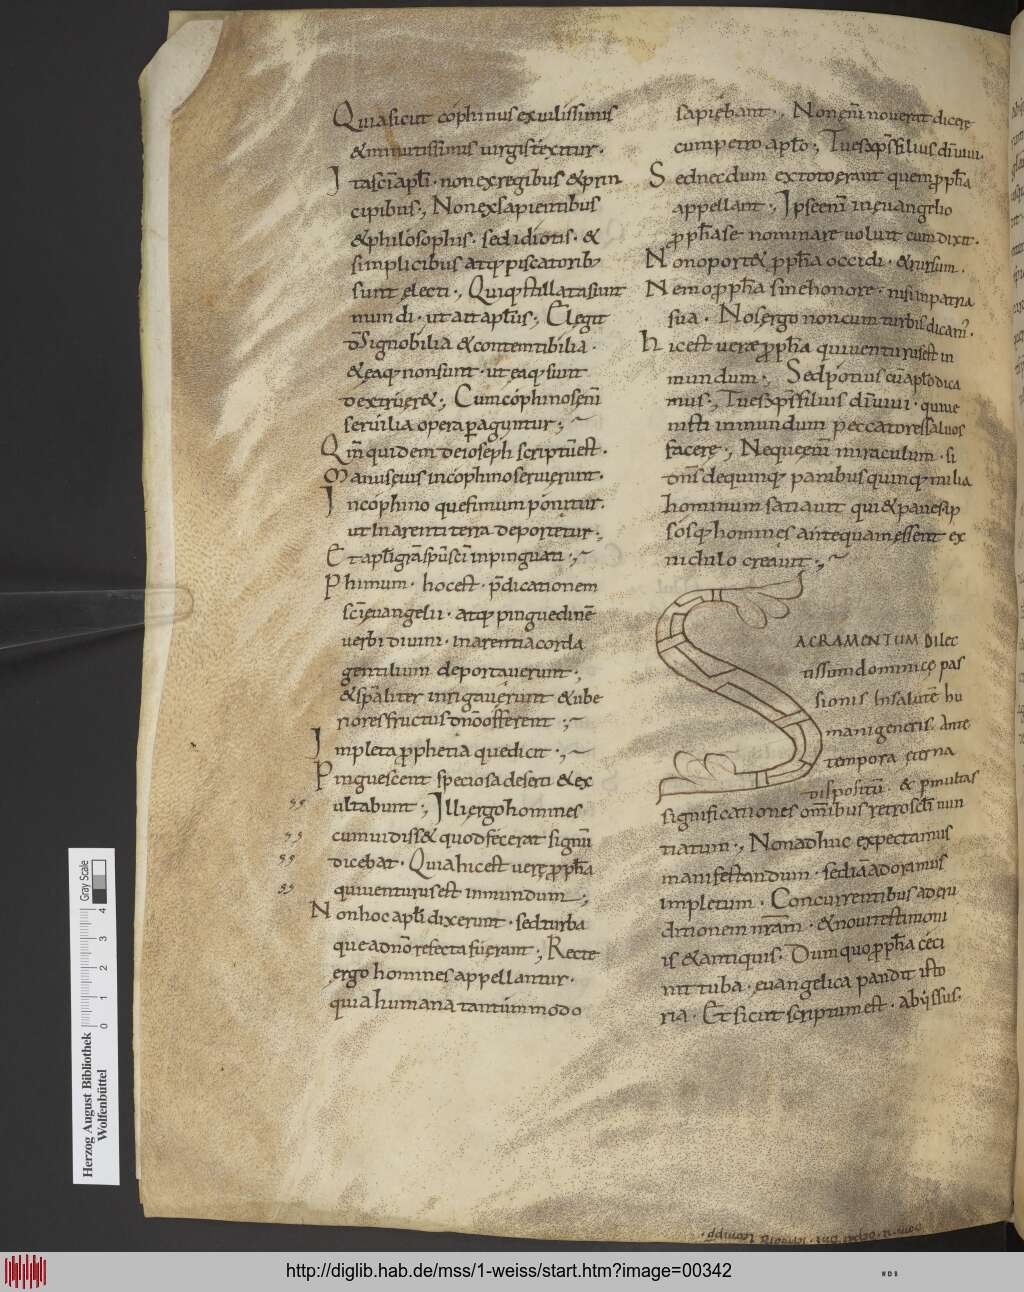 Quia sicut cophinus ex uilissimis
& minutissimis uirgis texitur.
Ita sci apłi. non ex regibus & prin
cipibus; Non ex sapientibus
& philosophis. sed idiotis. &
simplicibus atq; piscatorib;
sunt electi; Qui q̄si stillata sunt
mundi. ut ait apłus; Elegit
ds̄ ignobilia & contemtibilia.
& ea q; non sunt. ut ea q; sunt
dextruer&; Cum cophinos enī
seruilia opera peraguntur;
Qm̄ quidem de ioseph scriptū est.
Manus eius in cophino seruierunt.
In cophino que fimum ponitur.
ut In arenti terra deportetur;
Et apłi grā sp̄s sc̄i inpinguati;
Phimum. hoc est. p̄dicationem
sc̄i euangelii. atq; pinguedinē
uerbi diuini. in arentia corda
gentilium deportauerunt;
& sp̄aliter inrigauerunt & ube
riores fructus dn̄o offerrent;
Impleta pphetia que dicit;
Pinguescent speciosa deserti & ex
ultabunt; Illi ergo homines
cum uidiss& quod fecerat signū
dicebat. Quia hic est uere ppħa
qui uenturus est in mundum;
Non hoc apłi dixerunt. sed turba
que a dn̄o refecta fuerant; Recte
ergo homines appellantur.
quia humana tantummodo
sapiebant; Non enī nouerat dicere
cum petro apło; Tu es xp̄s filius dī uiui.
Sed nec dum ex toto erant quem ppħa
appellant; Ipse enī in euangelio
ppħa se nominare uoluit cum dixit.
Non oport& ppħa occidi. & rursum.
Nemo ppħa sine honore. nisi in patria
sua. Nos ergo non cum turbis dicam.
Hic est uere ppħa qui uenturus est in
mundum; Sed potius cū apło dica
mus; Tu es xp̄s filius dī uiui. qui ue
nisti in mundum peccatores saluos
facere; Neque enī miraculum. si
dn̄s de quinq; panibus quinq; milia
hominum satiauit qui & panes ip
sosq; homines antequam essent ex
nichilo creauit;
SACRAMENTUM Dilec
tissimi dominice pas
sionis In salutē hu
mani generis. ante
tempora eterna
dispositū. & p multas
significationes om̄ibus retro sctī nun
tiatum; Non adhuc expectamus
manifestandum. sed iā adoramus
impletum. Concurrentibus ad eru
ditionem nr̄am. & noui testimoni
is & antiquis. Dum quo ppħa ceci
nit tuba. euangelica pandit isto
ria. Et sicut scriptum est. abyssus.
Herzog August Bibliothek
Wolfenbüttel
0 1 2 3 4
Gray Scale
http://diglib.hab.de/mss/1-weiss/start.htm?image=00342